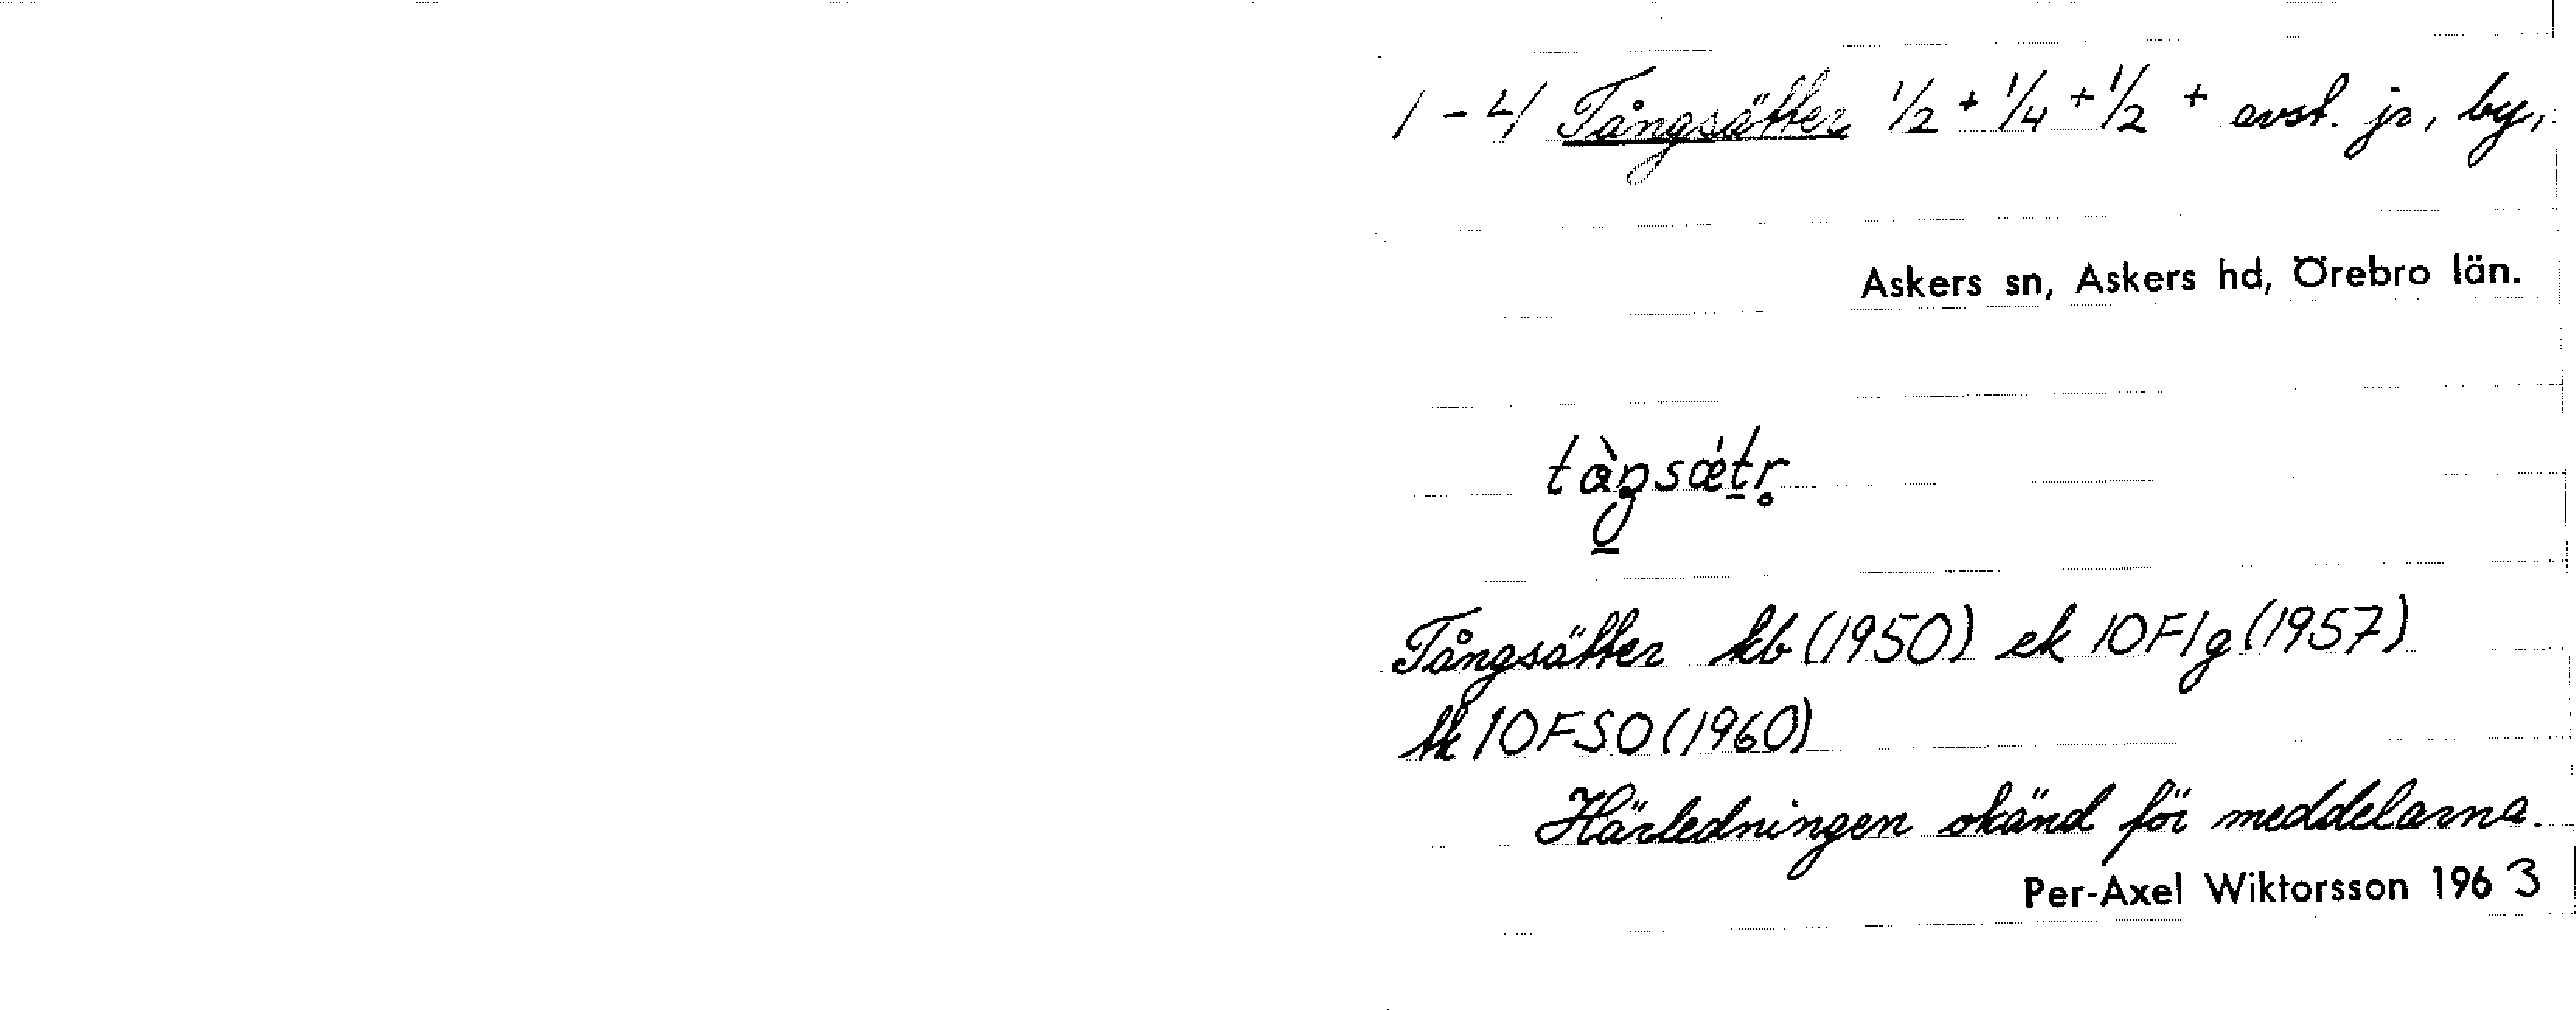 1-4 Tångsätter 1/2 + 1/4 + 1/2 + avst. js, by,
Askers sn, Askers hd, Örebro län.
Tångsätter kb (1950) ek 10F1g (1957)
tk 10FSO (1960)
Härledningen okänd för meddelarna.
Per-Axel Wiktorsson 1963